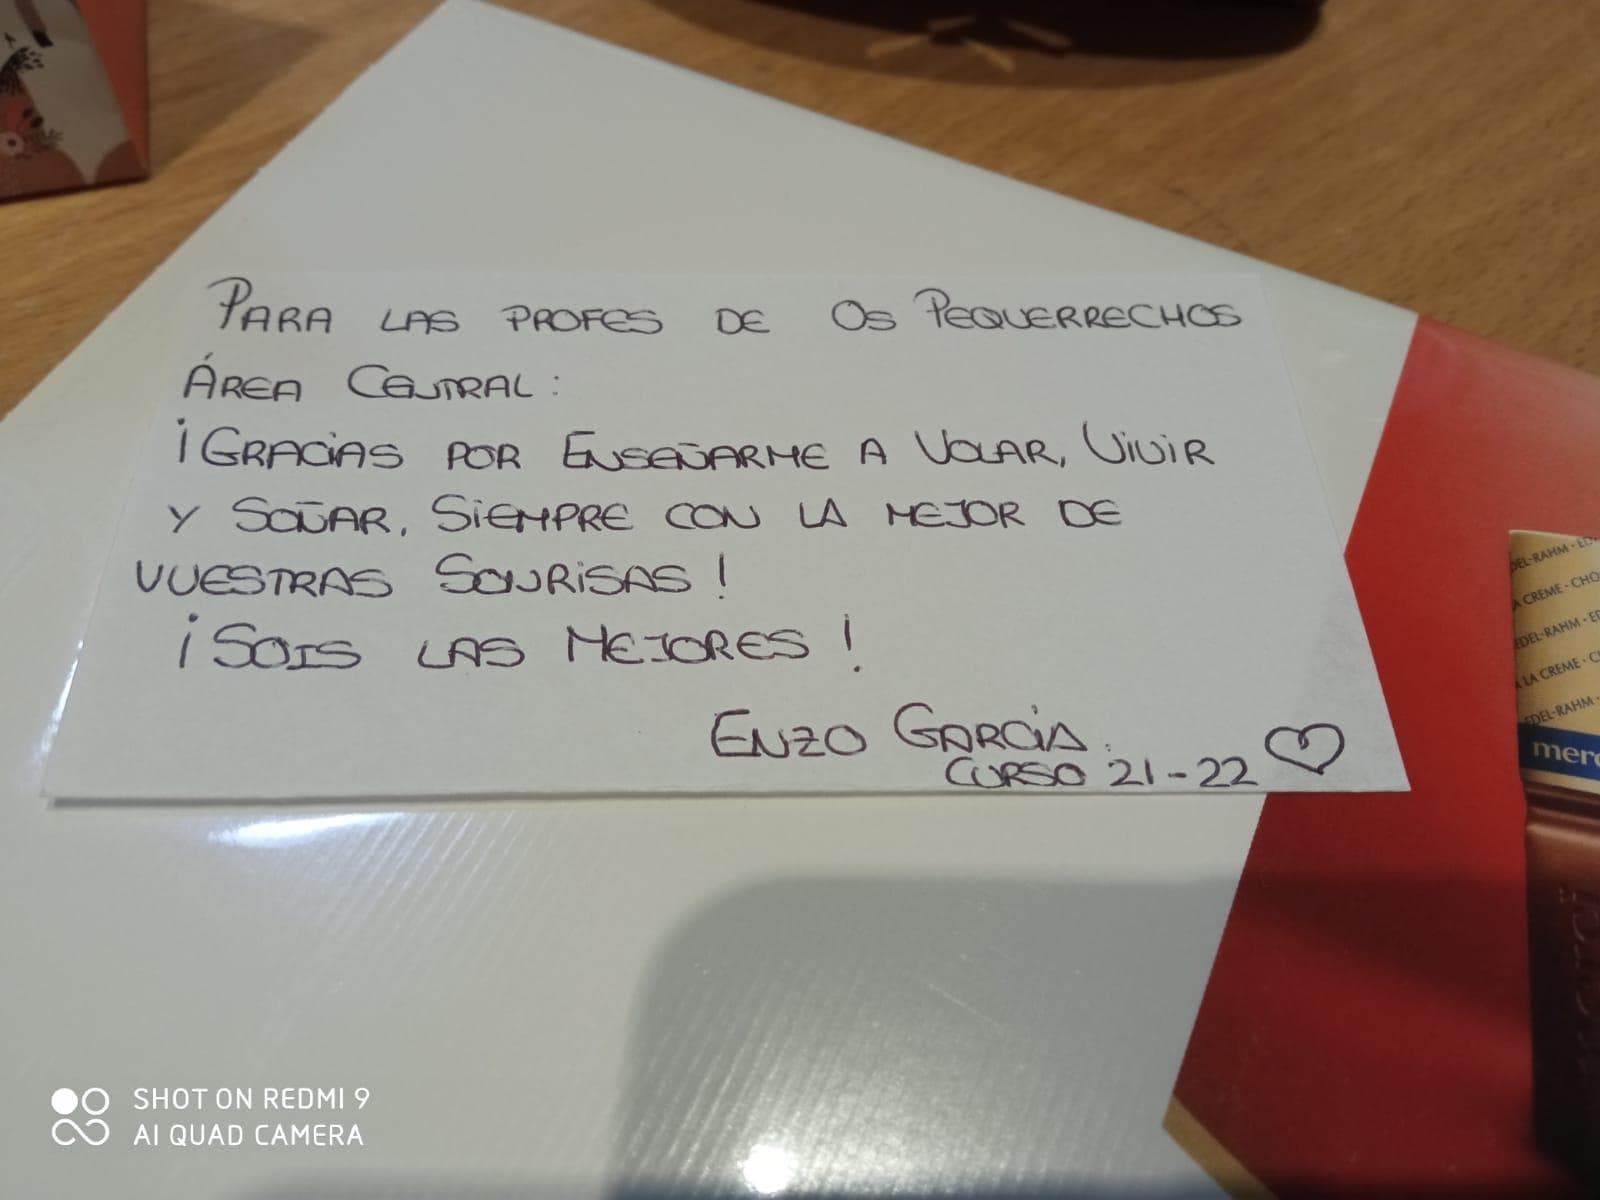 Para las profes de Os Pequerrechos
Área Central:
¡Gracias por Enseñarme a Volar, Vivir
y Soñar, Siempre con la mejor de
vuestras Sonrisas!
¡Sois las Mejores!
Enzo García.
Curso 21-22
DEL-RAHM · ED
A CREME · CHO
EDEL-RAHM · ED
A LA CREME · C
EDEL-RAHM ·
merc
SHOT ON REDMI 9
AI QUAD CAMERA